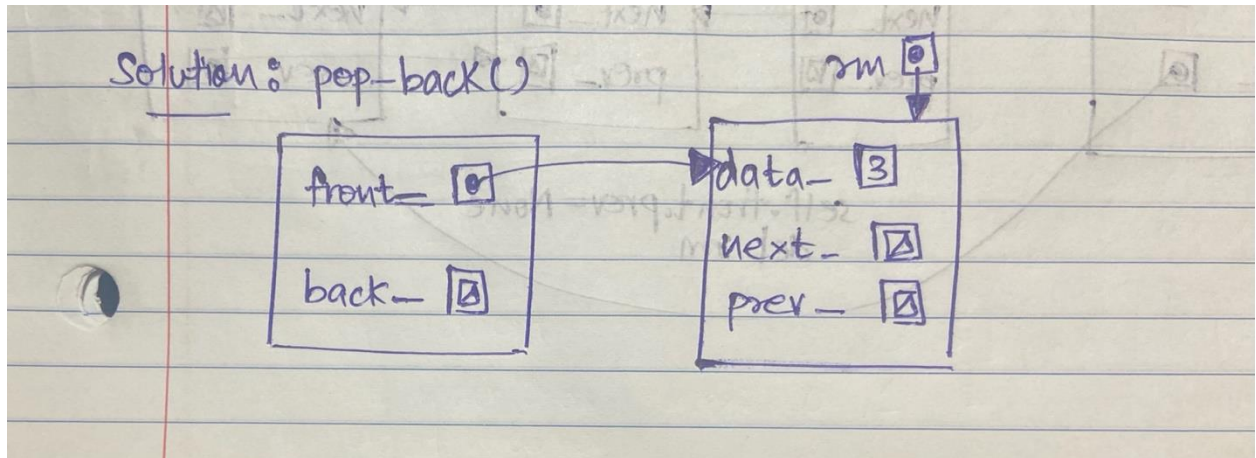 Solution: pop-back()
rm
front_
back_
data_ 3
next_
prev_